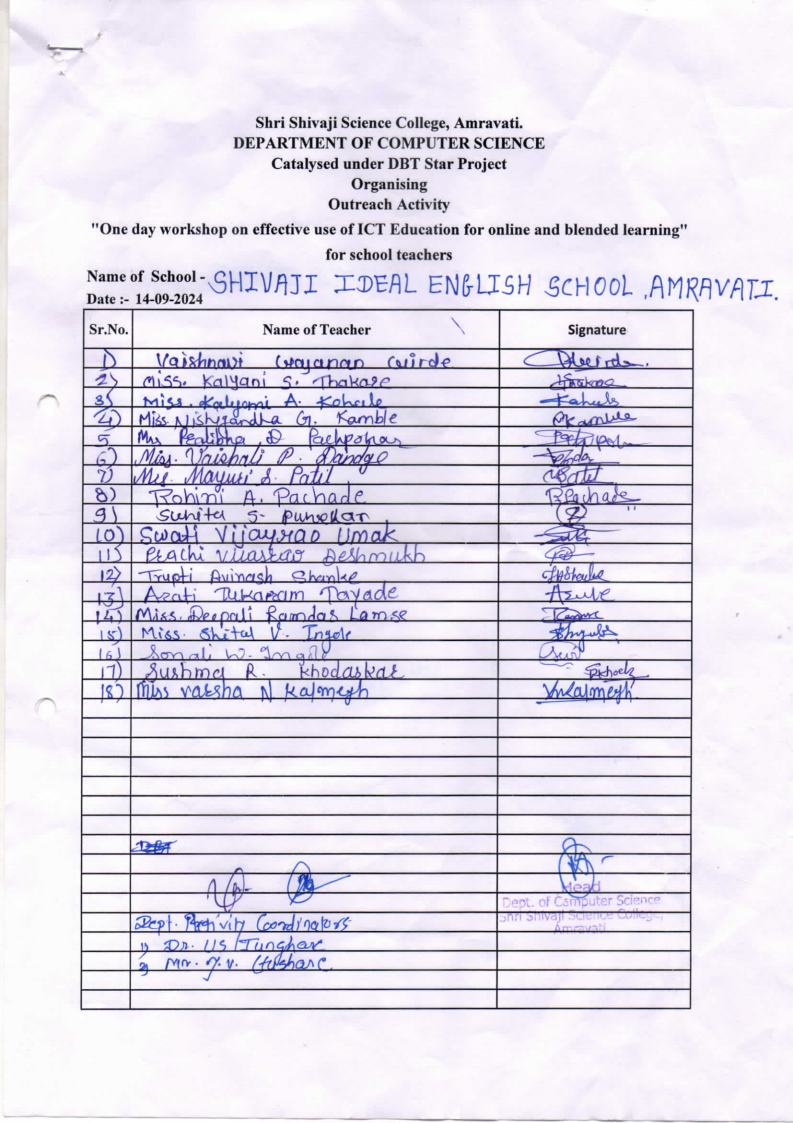 Shri Shivaji Science College, Amravati.
DEPARTMENT OF COMPUTER SCIENCE
Catalysed under DBT Star Project
Organising
Outreach Activity
"One day workshop on effective use of ICT Education for online and blended learning"
for school teachers
Name of School - SHIVAJI IDEAL ENGLISH SCHOOL, AMRAVATI.
Date :- 14-09-2024
Sr.No. Name of Teacher Signature
1) Vaishnavi
2) Miss. Kalyani S. Thakare
3) Miss. Kalyani A. Kohale
4) Miss Nishigandha G. Kamble
5 D Pachpohar
6) Miss. Vaishali P. Dandge
7) Mayuri S. Patil
8) Rohini A. Pachade RPachade
9) Sunita S. Punekar
10) Swati Vijayrao Umak
11) Prachi Vilasrao Deshmukh
12) Trupti Avinash Shanke
13) Arati Tukaram Tayade
14) Miss. Deepali Ramdas Lamse
15) Miss. Shital V. Ingole
16) Sonali W. Ingole
17) Sushma R. Khodaskar
18) Miss Varsha N Kalmegh VNKalmegh
Head
Dept. of Computer Science
Shri Shivaji Science College,
Amravati
Dept. Activity Coordinators
1) Dr. US Tunghar
2) Mr.